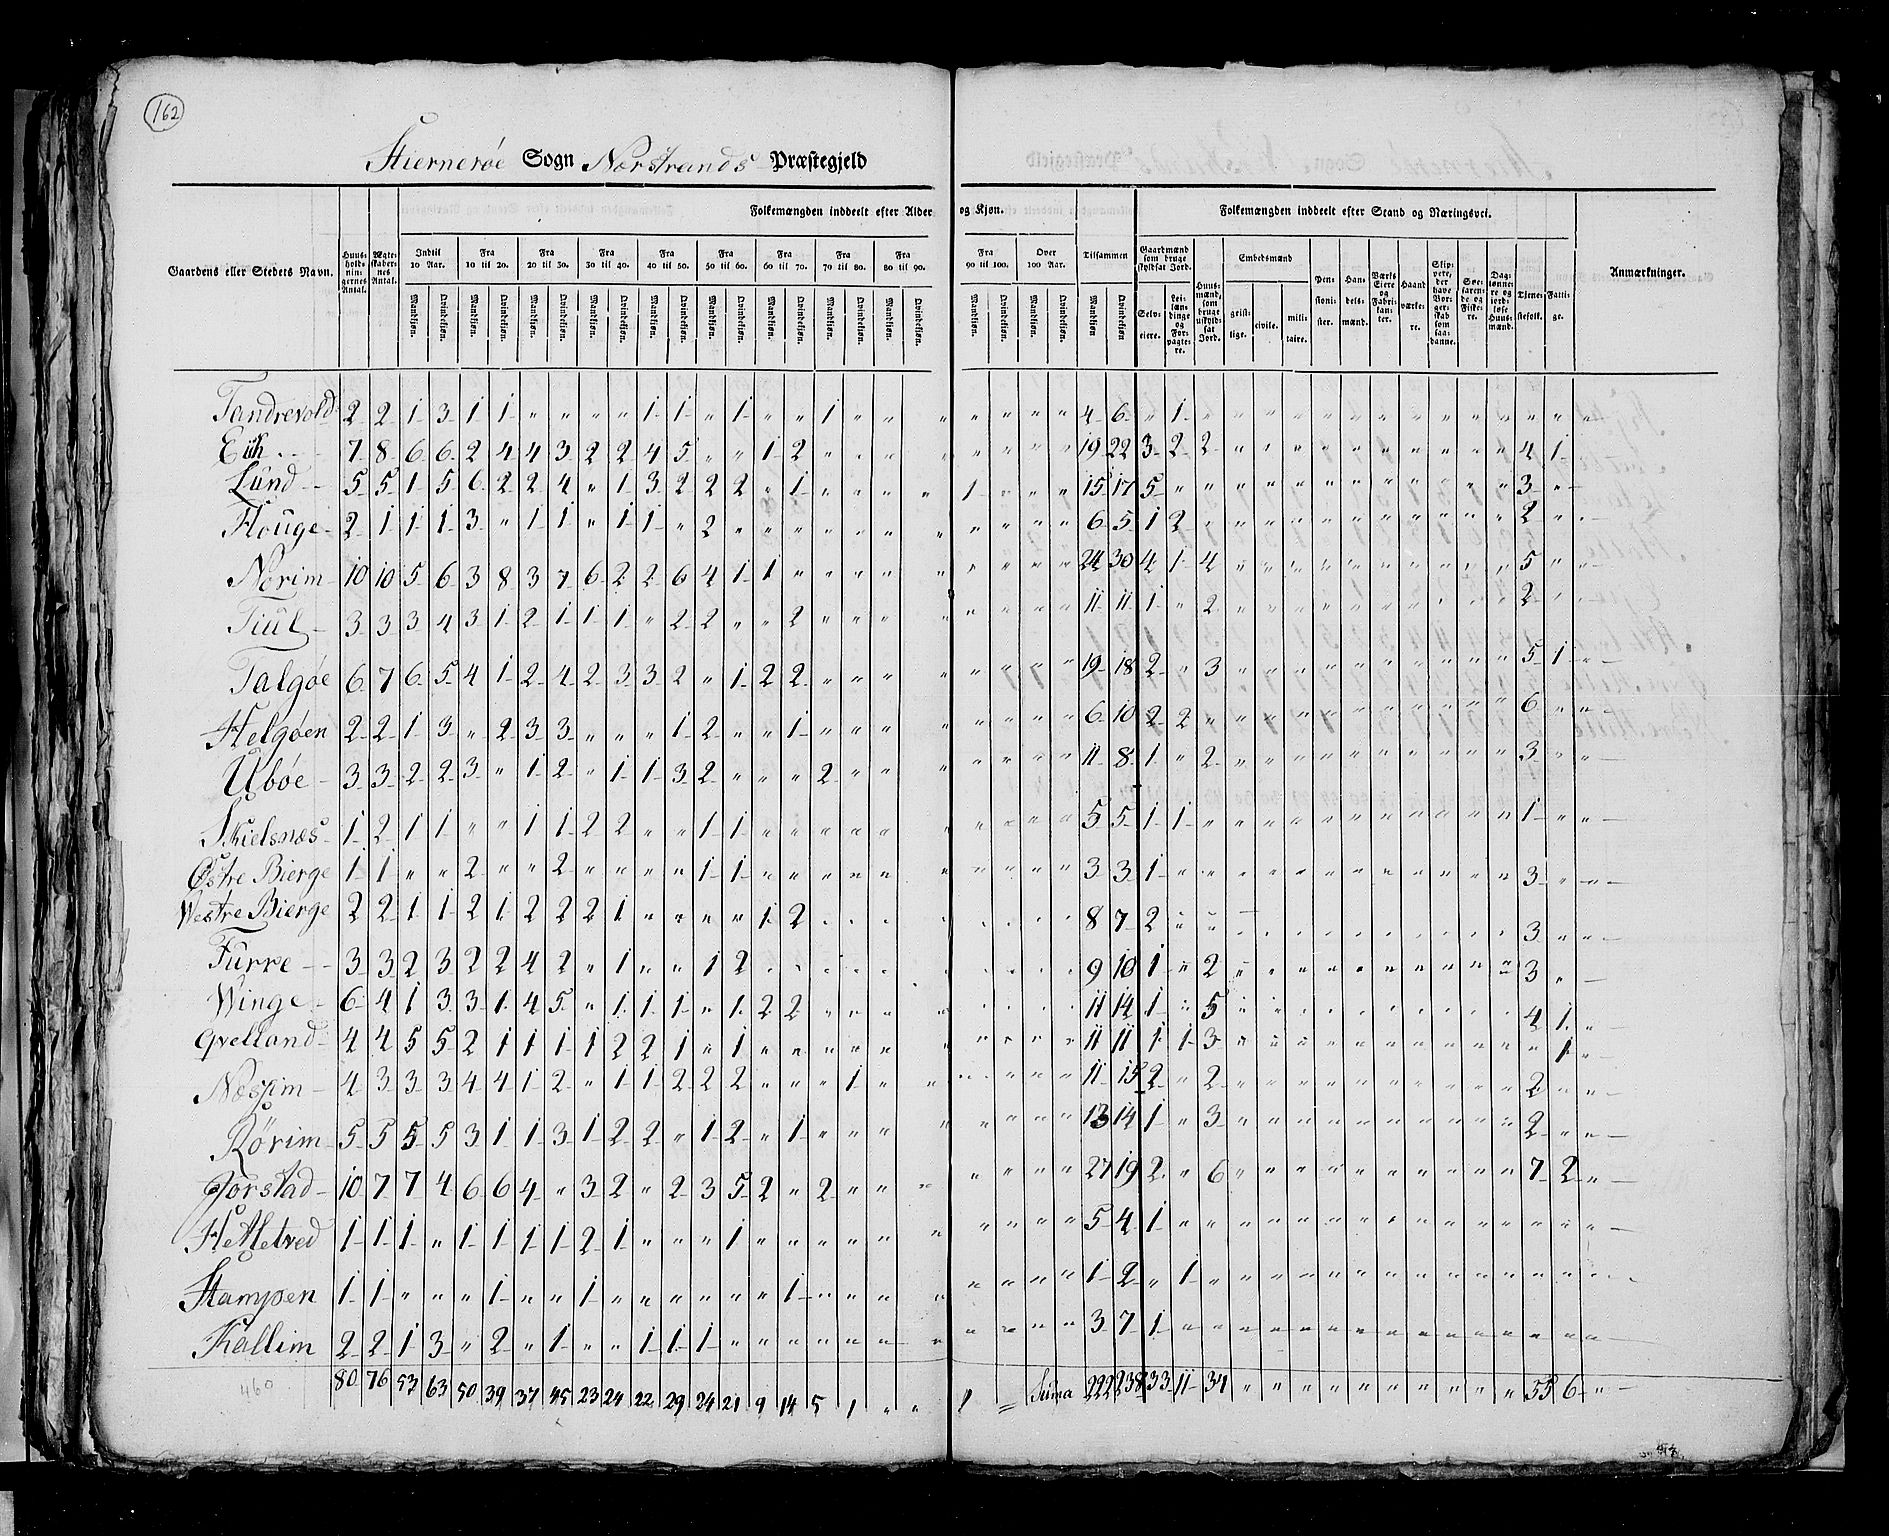 162
Stiernerøe Sogn Nærstrands Præstegjeld
Folkemængden inddeelt efter Alder og Kjøn. Folkemængden inddeelt efter Stand og Næringsvei.
Gaardens eller Stedets Navn. Huus-hold-nin-gernes Antal. Ægte-skaber-nes Antal. Indtil 10 Aar. Fra 10 til 20. Fra 20 til 30. Fra 30 til 40. Fra 40 til 50. Fra 50 til 60. Fra 60 til 70. Fra 70 til 80. Fra 80 til 90. Fra 90 til 100. Over 100 Aar. Tilsammen Gaardmænd som bruge skyldsat Jord. Huus-mænd, som bruge uskyld-sat Jord. Embedsmænd Pen-sioni-ster. Han-dels-mænd. Værks Eiere og Fabri-kan-ter. Haand værke-re. Skip-pere, der have Bor-ger-skab som saa-danne. Søe-faren-de og Fiske-re. Dag-lønne-re og jord-løse Huus-mænd. Tjene-stefolk. Fatti-ge. Anmærkninger.
Mandkjøn. Qvindekjøn. Selv-eiere. Lei-læn-dinge og For-pagte-re. geist-lige. civile. mili-taire.
Tandrevold 2 2 1 3 1 1 " " " " 1 1 " 1 " " 1 " " " " " " 4 6 " 1 " " " " " " " " " " " " "
Eik 7 8 6 6 2 4 4 3 2 2 4 5 " " 1 2 " " " " " " " 19 22 3 2 2 " " " " " " " " " " 4 1
Lund 5 5 1 5 6 2 2 4 " 1 3 2 2 2 " 1 " " " " 1 " " " 15 17 5 " " " " " " " " " " " " 3 "
Houge 2 1 1 1 3 " 1 1 " 1 1 " 2 " " " " " " " " " " " 6 5 1 2 " " " " " " " " " " " 2 "
Norim 10 10 5 6 3 8 3 7 6 2 2 6 4 1 1 " " " " " " " " " 24 30 4 1 4 " " " " " " " " " " 5 "
Tiul 3 3 3 4 3 1 2 1 1 1 " 2 2 " " 2 " " " " " " " " 11 11 1 " 2 " " " " " " " " " " 2 "
Talgøe 6 7 6 5 4 1 2 4 2 3 3 2 " 1 2 2 " " " " " " " " 19 18 2 " 3 " " " " " " " " " " 5 1
Helgøen 2 2 1 3 " 2 3 3 " " " 1 2 " " 1 " " " " " " " " 6 10 2 2 " " " " " " " " " " " 6 "
Ubøe 3 3 2 2 3 " 1 2 " 1 1 3 2 " " " 2 " " " " " " " 11 8 1 " 2 " " " " " " " " " " 3 "
Skielsnæs 1 2 1 1 " " 1 1 2 2 " " 1 1 " " " " " " " " " " 5 5 1 1 " " " " " " " " " " " 1 "
Østre Bierge 1 1 " " 2 " " 2 " " " " 1 1 " " " " " " " " " " 3 3 1 " " " " " " " " " " " " 3 "
Westre Bierge 2 2 1 1 2 1 2 2 2 1 " " " " 1 2 " " " " " " " " 8 7 2 " " " " " " " " " " " " 3 "
Furre 3 3 2 3 2 2 4 2 " 1 " " 1 2 " " " " " " " " " " 9 10 1 " 2 " " " " " " " " " " 3 "
Winge 6 4 1 3 3 1 4 5 " 1 1 1 " 1 2 2 " " " " " " " " 11 14 1 " 5 " " " " " " " " " " 4 1
Qvelland 4 4 5 5 2 1 1 1 1 2 2 1 " 1 " " " " " " " " " " 11 11 1 1 3 " " " " " " " " " " " 1
Næssim 4 3 3 3 4 4 1 2 " 1 1 2 2 2 " " " 1 " " " " " " 11 15 2 " 2 " " " " " " " " " " 2 "
Rørim 5 5 5 5 3 1 1 3 1 2 2 " 1 2 " 1 " " " " " " " " 13 14 1 " 3 " " " " " " " " " " 2 "
Jorstad 10 7 7 4 6 6 4 " 3 2 " 2 3 5 2 " 2 " " " " " " " 27 19 2 " 6 " " " " " " " " " " 7 2
Hetletved 1 1 1 " 1 1 1 1 2 1 " " " 1 " " " " " " " " " " 5 4 1 " " " " " " " " " " " " " "
Stampen 1 1 " " " 1 " " 1 " " " " " " 1 " " " " " " " " 1 2 " 1 " " " " " " " " " " " " "
Kallim 2 2 1 3 " 2 " 1 " " 1 1 1 " " " " " " " " " " " 3 7 1 " " " " " " " " " " " " " "
460 80 76 53 63 50 39 37 45 23 24 22 29 24 21 9 14 5 1 " " 1 " Suma 222 238 33 11 34 " " " " " " " " " " 55 6 "